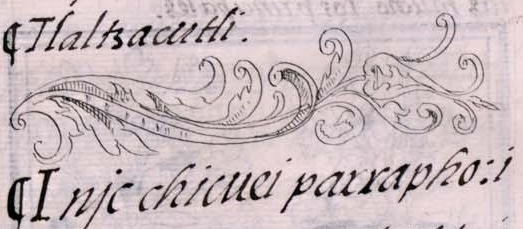 ¶Tlaltzacutli.
¶Injc chicuei parrapho: i